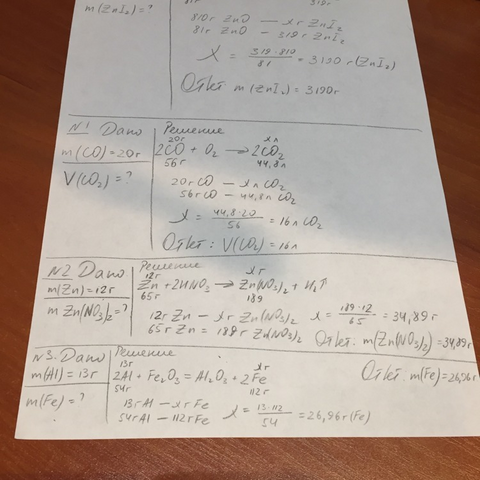 m(ZnI₂)=?
810г ZnO — xг ZnI₂
81г ZnO — 319г ZnI₂
x = 319·810/81 = 3190г(ZnI₂)
Ответ m(ZnI₂)=3190г
N1 Дано Решение
m(CO)=20г
20г xл
2CO + O₂ → 2CO₂
56г 44,8л
V(CO₂)=?
20гCO — xл CO₂
56гCO — 44,8л CO₂
x = 44,8·20/56 = 16л CO₂
Ответ: V(CO₂)=16л
N2 Дано Решение
m(Zn)=12г
12г xг
Zn + 2HNO₃ → Zn(NO₃)₂ + H₂↑
65г 189
m Zn(NO₃)₂=?
12г Zn — xг Zn(NO₃)₂
65г Zn = 189г Zn(NO₃)₂
x = 189·12/65 = 34,89г
Ответ: m(Zn(NO₃)₂)=34,89г
N3. Дано Решение
m(Al)=13г
13г xг
2Al + Fe₂O₃ = Al₂O₃ + 2Fe
54г 112г
m(Fe)=?
13гAl — xгFe
54гAl — 112гFe
x = 13·112/54 = 26,96г(Fe)
Ответ: m(Fe)=26,96г